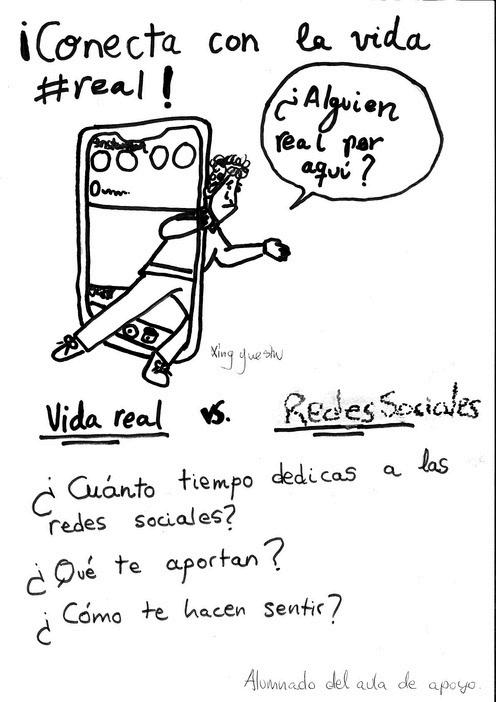 ¡Conecta con la vida
#real!
¿Alguien
real por
aquí?
Vida real vs. Redes Sociales
¿Cuánto tiempo dedicas a las
redes sociales?
¿Qué te aportan?
¿Cómo te hacen sentir?
Alumnado del aula de apoyo.